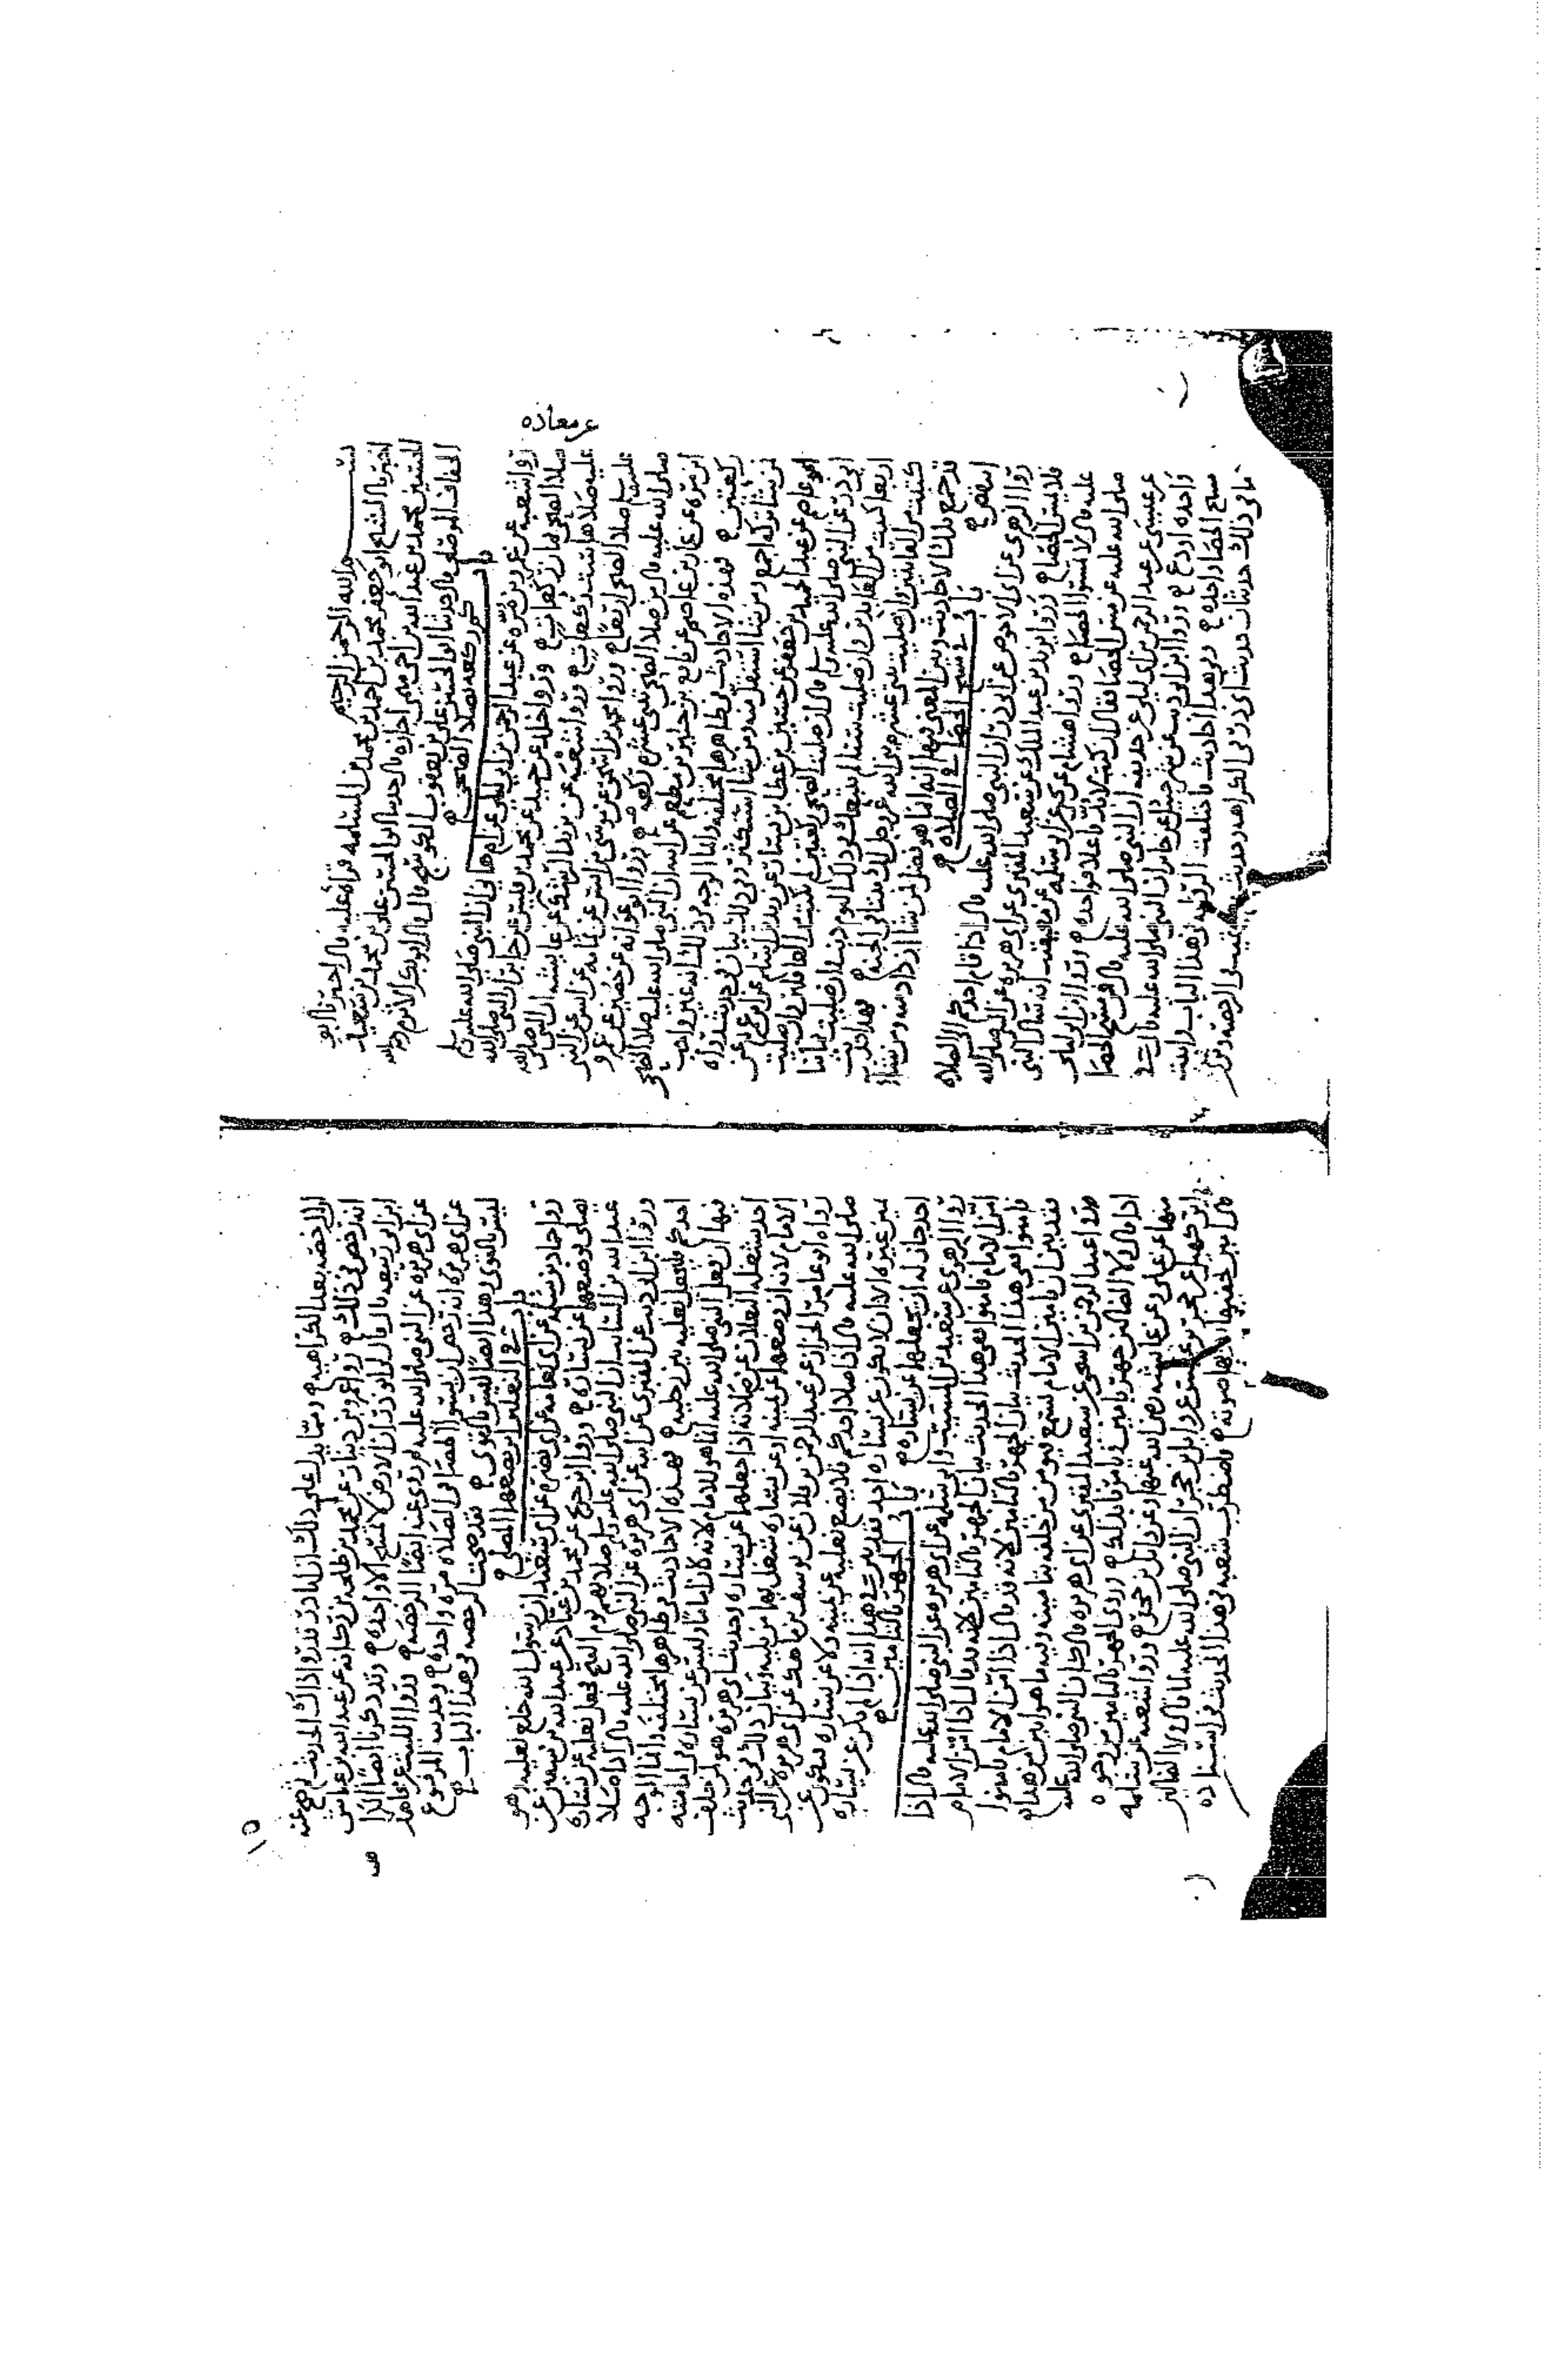 بسم الله الرحمن الرحيم
اخبرنا الشيخ ابو جعفر محمد بن احمد بن محمد بن المسلمه قراه عليه قال اخبرنا ابو
الحسين محمد بن عبد الله بن اخي ميمي اجازه قال حدثنا ابو الحسن علي بن محمد بن سعيد
الخفاف الموصلي قال حدثنا ابو الحسن علي بن يعقوب قال قال ابو بكر الاثرم رحمه الله
باب كم ركعه تصلا الضحى
روا شعبه عن عمرو بن مره عن عبد الرحمن بن ابي ليلى عن ام هاني ان النبي صلى الله عليه وسلم
صلا الضحى ثمان ركعات وروا
عن معاذه
عليه صلاها ست ركعات وروا شعبه عن يزيد الرشك عن عايشه ان النبي صلى الله
عليه وسلم صلا الضحى اربعا وروا محمد بن اسحق عن موسى عن ثمامه عن انس عن النبي
صلى الله عليه قال من صلا الضحى ثنتي عشره ركعه وروا ابو عوانه عن حصين عن عمرو
ابن مره عن عمار بن عاصم عن نافع بن جبير بن مطعم عن ابيه ان النبي صلى الله عليه صلا الضحى
ركعتين فهذه الاحاديث في ظاهرها مختلفه وانما الوجه في ذلك انه غير واجب
لمن شا تركه اجمع ومن شا استقل منه ومن شا استكثر وفي ذلك بيان في حديث رواه
ابو عاصم عن عبد الحميد بن جعفر عن حسين بن عطا بن يسار عن زيد بن اسلم عن ابن عمر عن
ابي ذر عن النبي صلى الله عليه وسلم قال ان صليت الضحى ركعتين لم تكتب من الغافلين وان صليت
اربعا كتبت من العابدين وان صليت ستا لم يتبعك في ذلك اليوم ذنب وان صليت ثمانيا
كتبت من القانتين وان صليت ثنتي عشره بنى الله عز وجل لك بيتا في الجنه فهذا الحديث
قد جمع تلك الاحاديث وبين المعنى فيها انه انما هو فضل لمن شا ازداد منه ومن شا
انتقص باب في مسح الحصا في الصلاه
روا الزهري عن ابي الاحوص عن ابي ذر ان النبي صلى الله عليه قال اذا قام احدكم الى الصلاه
فلا يمس الحصا وروا يزيد بن عبد الملك عن سعيد المقبري عن ابي هريره عن النبي صلى الله
عليه قال لا تمسوا الحصا وروا هشام عن يحيى عن ابي سلمه عن معيقيب انه سال النبي
صلى الله عليه عن مس الحصا فقال ان كنت لا بد فاعلا فواحده وروا ابن ابي ليلى
عن عيسى عن عبد الرحمن بن ابي ليلى عن حذيفه ان النبي صلى الله عليه قال في مسح الحصا
واحده او دع وروا ابن ابي ذيب عن شرحبيل عن جابر ان النبي صلى الله عليه قال في
مسح الحصا واحده وفي هذا احاديث فاختلفت الروايه في هذا الباب
فاما في ذلك حديثان حديث ابي ذر في الكراهه وحديث معيقيب في الرخصه
١٥
الرخصه بعد الكراهيه ومما يدل على ذلك ان ابا ذر قد روا ذلك الحديث ثم صح عنه
انه رخص في ذلك روا عمرو بن دينار عن محمد بن طلحه بن ركانه عن عبد الله بن عياش
ابن ابي ربيعه قال قال لي ابو ذر ان الارض لا تمسح الا واحده وقد ذكرنا ايضا الكراهه
عن ابي هريره عن النبي صلى الله عليه ثم روي عنه ايضا الرخصه وروا الليث عن مجاهد
عن ابي هريره انه رخص ان يسوا الحصا في الصلاه مره واحده وحديث المرفوع
ليس بالقوي وهذا ايضا ليس بالقوي فقد صحت الرخصه في هذا الباب
باب في النعلين اين يضعهما المصلي
روا حماد بن سلمه عن ابي نعامه عن ابي نضره عن ابي سعيد ان رسول الله خلع نعليه وهو
يصلي فوضعهما عن يساره وروا ابن جريج عن محمد بن عباد عن عبد الله بن سفين عن
عبد الله بن السايب ان النبي صلى الله عليه وسلم صلا بهم يوم الفتح فجعل نعليه عن يساره
وروا ابن ابي ذيب عن المقبري عن ابيه عن ابي هريره عن النبي صلى الله عليه قال اذا صلا
احدكم فليجعل نعليه بين رجليه فهذه الاحاديث في ظاهرها مختلفه وانما الوجه
فيها ان فعل النبي صلى الله عليه انما هو للامام لانه كان اماما وليس عن يساره في امامته
احد يشغله النعلان عن صلاته اذا جعلهما عن يساره وحديث ابي هريره هو لمن خلف
الامام لانه ان وضعهما عن يمينه او عن يساره شغل بهما من يليه وبيان ذلك في حديث
رواه ابو عامر الخزاز عن عبد الرحمن بن فلان عن يوسف بن ماهك عن ابي هريره عن النبي
صلى الله عليه قال اذا صلا احدكم فلا يضع نعليه عن يمينه ولا عن يساره فتكون عن
يمين غيره الا ان لا يكون عن يساره احد فقد بين في هذا انه اذا لم يكن عن يساره
احد جاز له ان يجعلهما عن يساره باب في الجهر بالتامين
روا الزهري عن سعيد بن المسيب وابي سلمه عن ابي هريره عن النبي صلى الله عليه قال اذا
امن الامام فامنوا ففي هذا الحديث بيان الجهر بالتامين لانه قد قال اذا امن الامام
فامنوا
فقد بين ان تامين الامام يسمع فيومن من خلفه بتامينه وفيه ما هو ابين من هذا
وروا عبد الرحمن بن اسحق عن سعيد المقبري عن ابي هريره قال كان النبي صلى الله عليه
اذا قال ولا الضالين جهر بامين ثم يامرنا بذلك وروي الجهر بالتامين من وجوه
منها عن علي وعن عايشه رضي الله عنها وعن وايل بن حجر وروا شعبه عن سلمه
ابن كهيل عن حجر عن وايل بن حجر ان النبي صلى الله عليه لما قال ولا الضالين
قال امين خفض بها صوته فاضطرب شعبه في هذا الحديث في اسناده